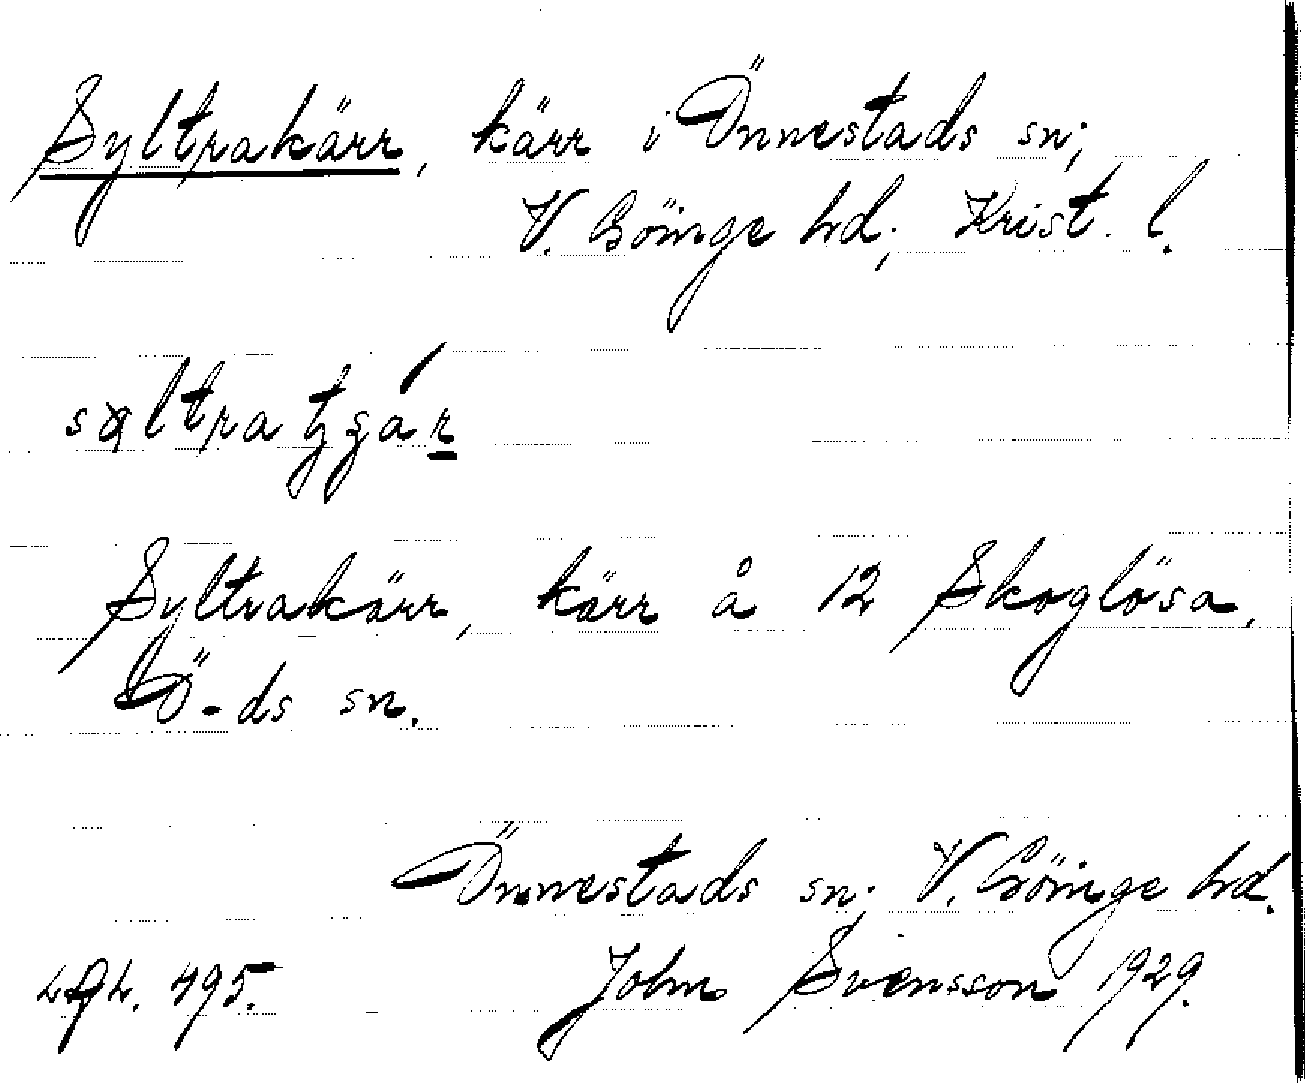 Syltrakärr, kärr i Önnestads sn;
V. Göinge hd; Krist. l.
Syltrakärr, kärr å 12 Skoglösa,
Ö-ds sn.
Önnestads sn; V. Göinge hd.
495. John Svensson 1929.